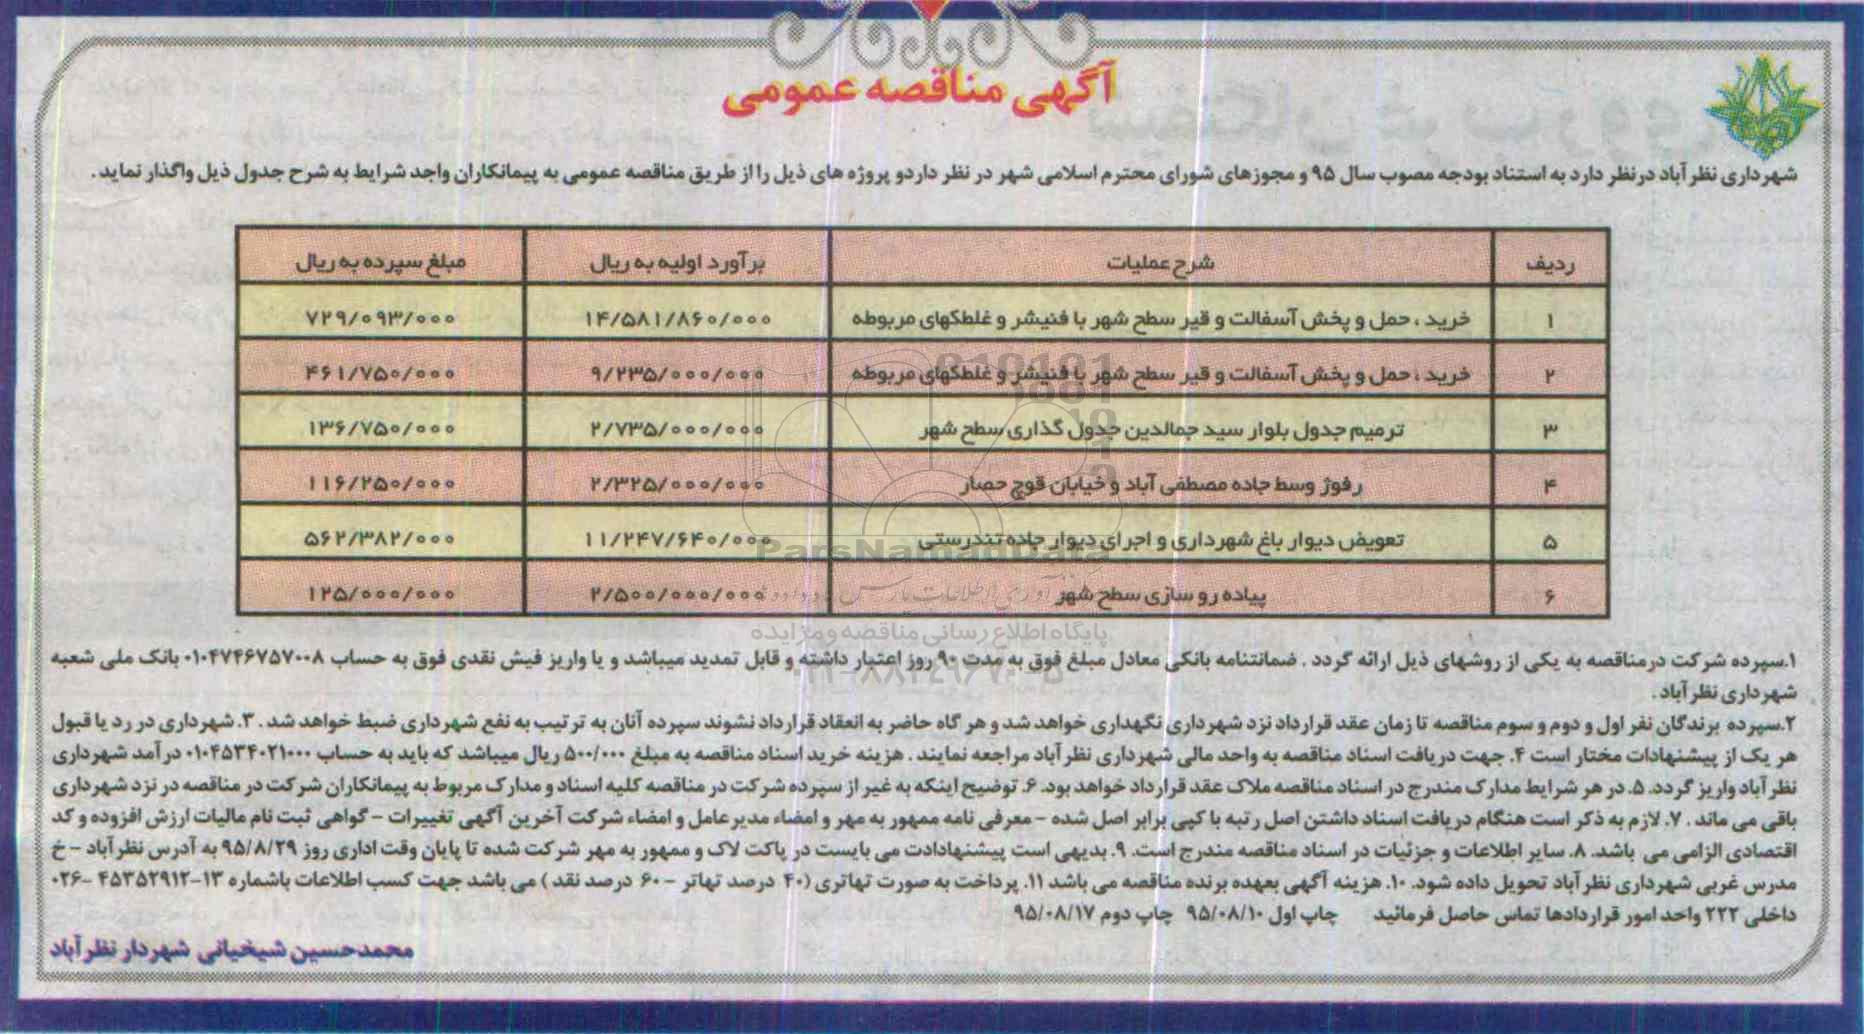 آگهی مناقصه عمومی
شهرداری نظرآباد درنظر دارد به استناد بودجه مصوب سال ۹۵ و مجوزهای شورای محترم اسلامی شهر در نظر داردو پروژه های ذیل را از طریق مناقصه عمومی به پیمانکاران واجد شرایط به شرح جدول ذیل واگذار نماید .
ردیف شرح عملیات برآورد اولیه به ریال مبلغ سپرده به ریال
۱ خرید ، حمل و پخش آسفالت و قیر سطح شهر با فنیشر و غلطکهای مربوطه ۱۴/۵۸۱/۸۶۰/۰۰۰ ۷۲۹/۰۹۳/۰۰۰
۲ خرید ، حمل و پخش آسفالت و قیر سطح شهر با فنیشر و غلطکهای مربوطه ۹/۲۳۵/۰۰۰/۰۰۰ ۴۶۱/۷۵۰/۰۰۰
۳ ترمیم جدول بلوار سید جمالدین جدول گذاری سطح شهر ۲/۷۳۵/۰۰۰/۰۰۰ ۱۳۶/۷۵۰/۰۰۰
۴ رفوژ وسط جاده مصطفی آباد و خیابان قوچ حصار ۲/۳۲۵/۰۰۰/۰۰۰ ۱۱۶/۲۵۰/۰۰۰
۵ تعویض دیوار باغ شهرداری و اجرای دیوار جاده تندرستی ۱۱/۲۴۷/۶۴۰/۰۰۰ ۵۶۲/۳۸۲/۰۰۰
۶ پیاده رو سازی سطح شهر ۲/۵۰۰/۰۰۰/۰۰۰ ۱۲۵/۰۰۰/۰۰۰
ParsNamadData
پایگاه اطلاع رسانی مناقصه و مزایده
۰۲۱-۸۸۳۴۹۶۷۰-۵
۱.سپرده شرکت درمناقصه به یکی از روشهای ذیل ارائه گردد . ضمانتنامه بانکی معادل مبلغ فوق به مدت ۹۰ روز اعتبار داشته و قابل تمدید میباشد و یا واریز فیش نقدی فوق به حساب ۰۱۰۴۷۴۶۷۵۷۰۰۸ بانک ملی شعبه
شهرداری نظرآباد .
۲.سپرده برندگان نفر اول و دوم و سوم مناقصه تا زمان عقد قرارداد نزد شهرداری نگهداری خواهد شد و هر گاه حاضر به انعقاد قرارداد نشوند سپرده آنان به ترتیب به نفع شهرداری ضبط خواهد شد . ۳. شهرداری در رد یا قبول
هر یک از پیشنهادات مختار است ۴. جهت دریافت اسناد مناقصه به واحد مالی شهرداری نظرآباد مراجعه نمایند . هزینه خرید اسناد مناقصه به مبلغ ۵۰۰/۰۰۰ ریال میباشد که باید به حساب ۰۱۰۴۵۳۴۰۲۱۰۰۰ درآمد شهرداری
نظرآباد واریز گردد. ۵. در هر شرایط مدارک مندرج در اسناد مناقصه ملاک عقد قرارداد خواهد بود. ۶. توضیح اینکه به غیر از سپرده شرکت در مناقصه کلیه اسناد و مدارک مربوط به پیمانکاران شرکت در مناقصه در نزد شهرداری
باقی می ماند . ۷. لازم به ذکر است هنگام دریافت اسناد داشتن اصل رتبه با کپی برابر اصل شده – معرفی نامه ممهور به مهر و امضاء مدیرعامل و امضاء شرکت آخرین آگهی تغییرات – گواهی ثبت نام مالیات ارزش افزوده و کد
اقتصادی الزامی می باشد. ۸. سایر اطلاعات و جزئیات در اسناد مناقصه مندرج است. ۹. بدیهی است پیشنهادادت می بایست در پاکت لاک و ممهور به مهر شرکت شده تا پایان وقت اداری روز ۹۵/۸/۲۹ به آدرس نظرآباد – خ
مدرس غربی شهرداری نظرآباد تحویل داده شود. ۱۰. هزینه آگهی بعهده برنده مناقصه می باشد ۱۱. پرداخت به صورت تهاتری (۴۰ درصد تهاتر – ۶۰ درصد نقد ) می باشد جهت کسب اطلاعات باشماره ۱۳-۴۵۳۵۲۹۱۲ -۰۲۶
داخلی ۲۲۲ واحد امور قراردادها تماس حاصل فرمائید چاپ اول ۹۵/۰۸/۱۰ چاپ دوم ۹۵/۰۸/۱۷
محمدحسین شیخیانی شهردار نظرآباد